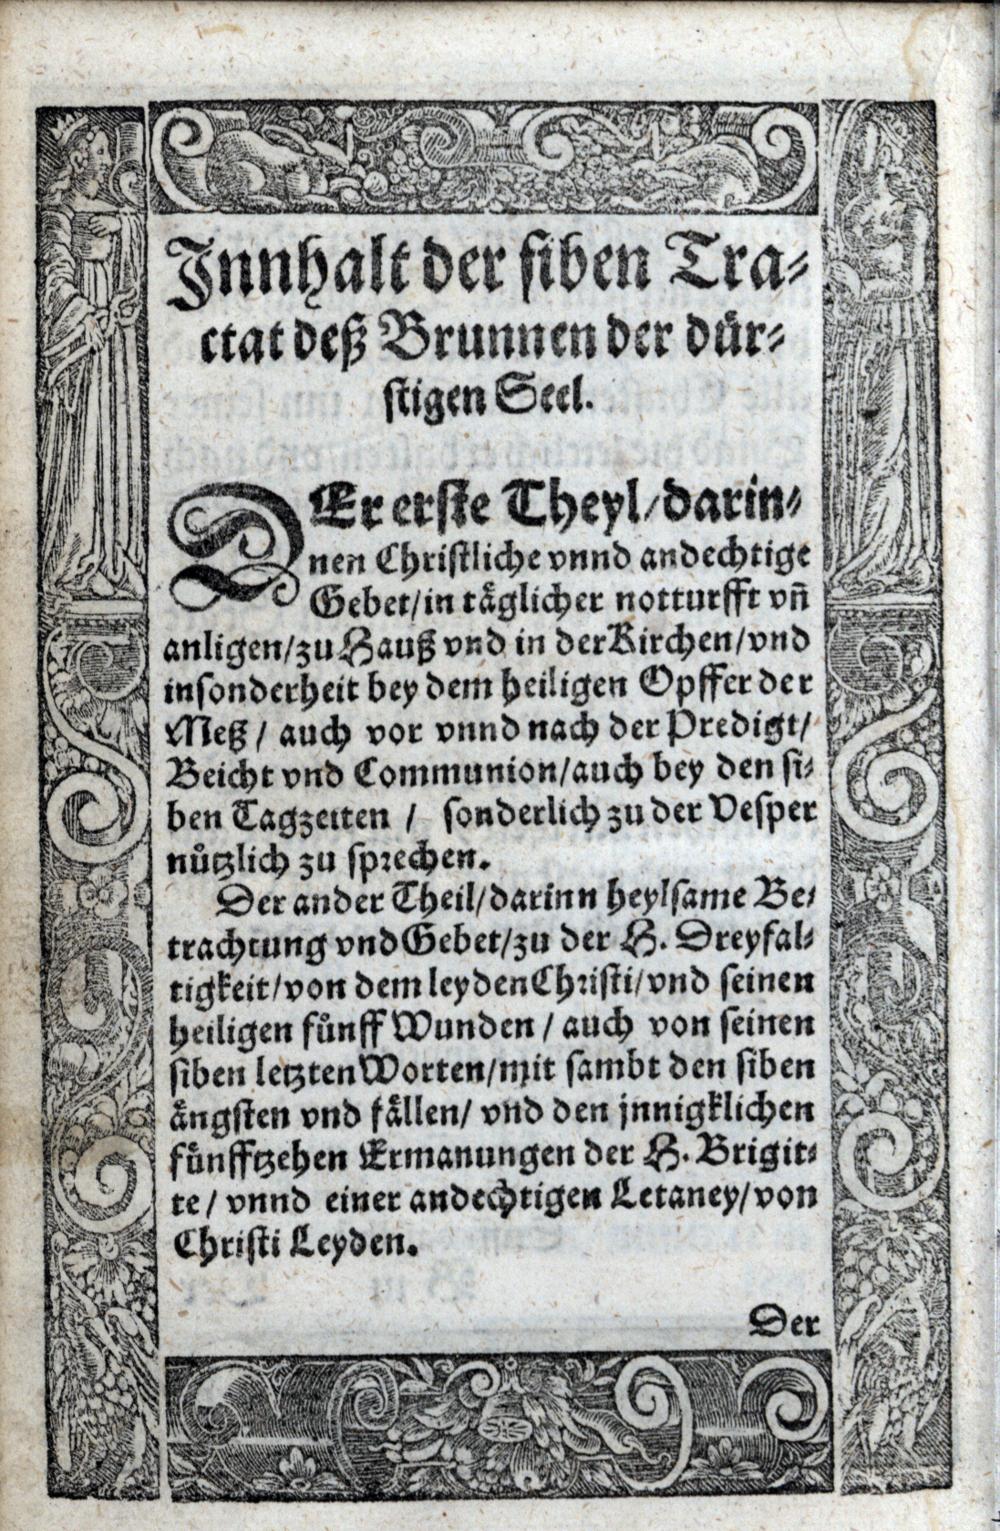 Jnnhalt der siben Tra⸗
ctat deß Brunnen der dür⸗
stigen Seel.
DEr erste Theyl/darin⸗
nen Christliche vnnd andechtige
Gebet/in täglicher notturfft vn̄
anligen/zu Hauß vnd in der Kirchen/vnd
insonderheit bey dem heiligen Opffer der
Meß / auch vor vnnd nach der Predigt/
Beicht vnd Communion/auch bey den si⸗
ben Tagzeiten / sonderlich zu der Vesper
nützlich zu sprechen.
Der ander Theil/darinn heylsame Be⸗
trachtung vnd Gebet/zu der H. Dreyfal⸗
tigkeit/von dem leyden Christi/vnd seinen
heiligen fünff Wunden / auch von seinen
siben letzten Worten/mit sambt den siben
ängsten vnd fällen/ vnd den jnnigklichen
fünfftzehen Ermanungen der H. Brigit⸗
te/ vnnd einer andechtigen Letaney/von
Christi Leyden.
Der